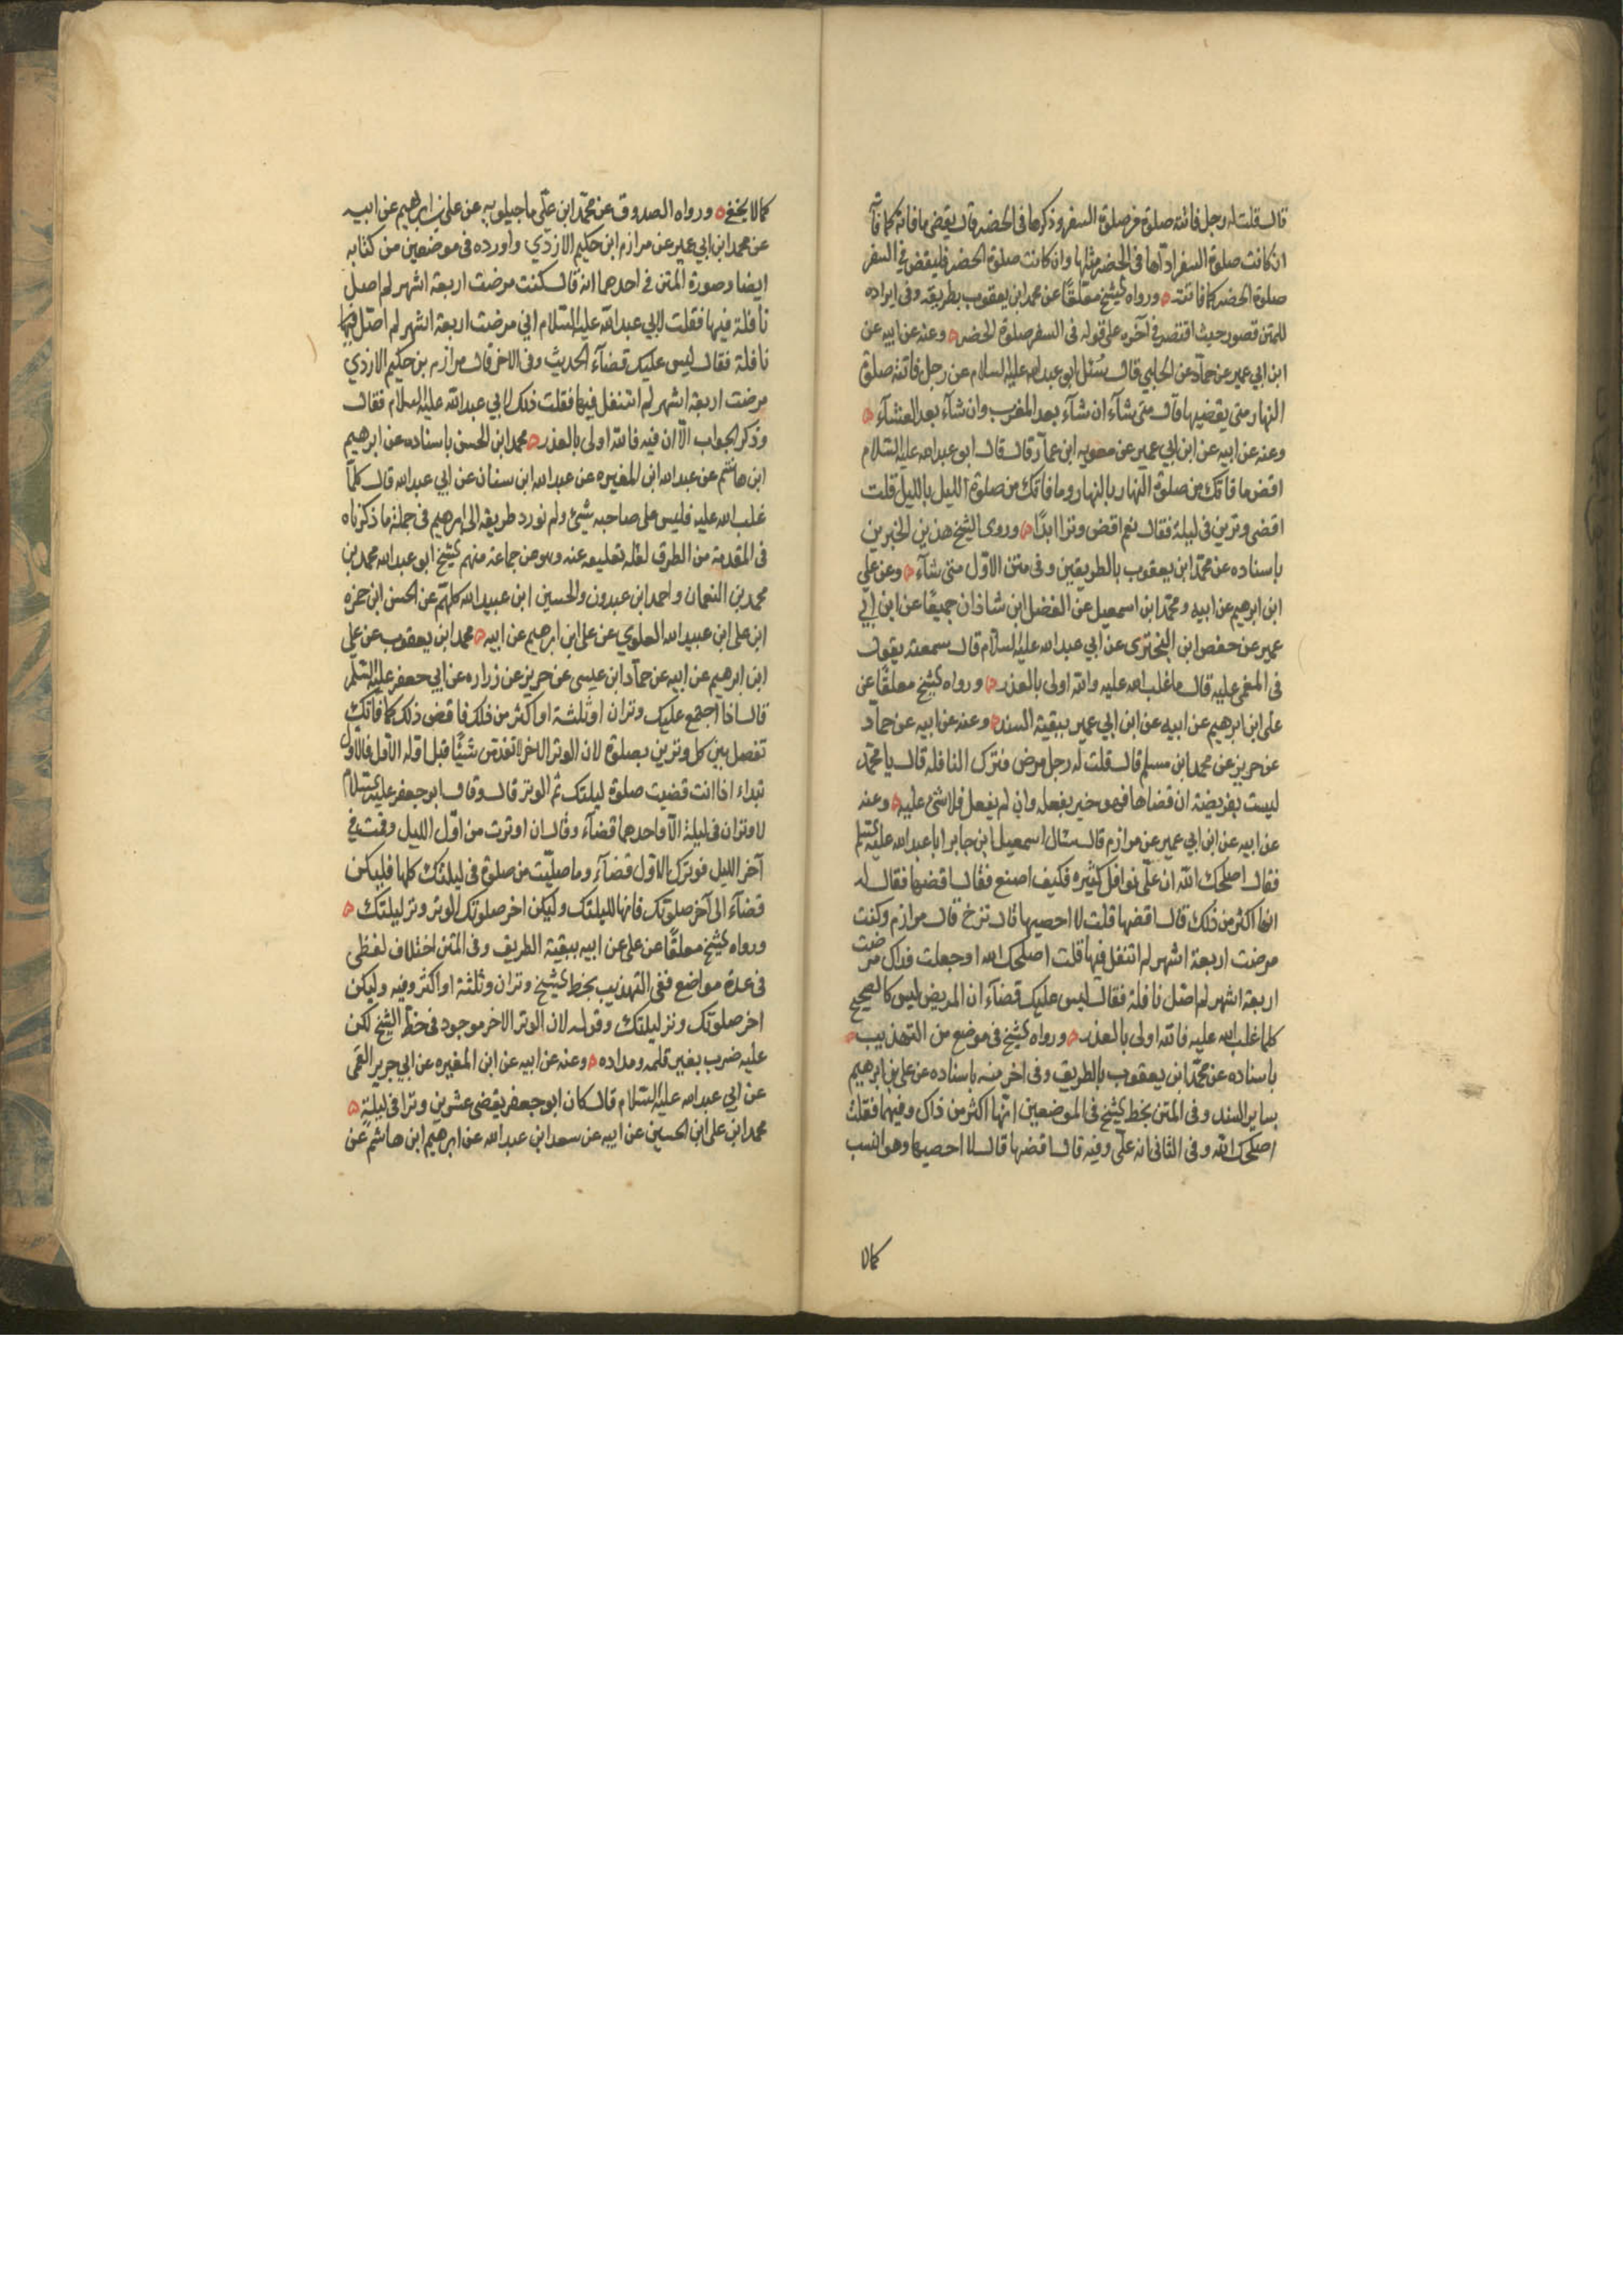 قال قلت له رجل فاتته صلوة من صلوة السفر وذكرها في الحضر قال يقضي ما فاته كما فاته
ان كانت صلوة السفر اداها في الحضر مثلها وان كانت صلوة الحضر فليقض في السفر
صلوة الحضر كما فاتته ورواه الشيخ معلقا عن محمد ابن يعقوب بطريقه وفي ايراده
للمتن قصور حيث اقتصر في آخره على قوله في السفر صلوة الحضر وعنه عن ابيه عن
ابن ابي عمير عن حماد عن الحلبي قال سئل ابو عبد الله عليه السلام عن رجل فاتته صلوة
النهار متى يقضيها قال متى شآء ان شآء بعد المغرب وان شآء بعد العشآء
وعنه عن ابيه عن ابن ابي عمير عن معويه ابن عمار قال قال ابو عبد الله عليه السلام
اقض ما فاتك من صلوة النهار بالنهار وما فاتك من صلوة الليل بالليل قلت
اقضي وترين في ليلة فقال نعم اقض وترا ابدًا وروى الشيخ هذين الخبرين
باسناده عن محمد ابن يعقوب بالطريقين وفي متن الاول متى شآء وعن علي
ابن ابرهيم عن ابيه ومحمد ابن اسمعيل عن الفضل ابن شاذان جميعًا عن ابن ابي
عمير عن حفص ابن البختري عن ابي عبد الله عليه السلام قال سمعته يقول
في المغمى عليه قال ما غلب الله عليه والله اولى بالعذر ورواه الشيخ معلقًا عن
علي ابن ابرهيم عن ابيه عن ابن ابي عمير ببقية السند وعنه عن ابيه عن حماد
عن حريز عن محمد ابن مسلم قال قلت له رجل مرض فترك النافله قال يا محمد
ليست بفريضة ان قضاها فهو خير يفعله وان لم يفعل فلا شئ عليه وعنه
عن ابيه عن ابن ابي عمير عن مرازم قال سال اسمعيل ابن جابر ابا عبد الله عليه السلم
فقال اصلحك الله ان علي نوافل كثيره فكيف اصنع فقال اقضها فقال له
انها اكثر من ذلك قال اقضها قلت لا احصيها قال توخ قال مرازم وكنت
مرضت اربعة اشهر لم اتنفل فيها قلت اصلحك الله او جعلت فداك مرضت
اربعة اشهر لم اصل نافلة فقال ليس عليك قضآء ان المريض ليس كالصحيح
كلما غلب الله عليه فالله اولى بالعذر ورواه الشيخ في موضع من التهذيب
باسناده عن محمد ابن يعقوب بالطريق وفي اخر منه باسناده عن علي بن ابرهيم
بساير السند وفي المتن بخط الشيخ في الموضعين انها اكثر من ذاك وفيهما فقلت
اصلحك الله وفي الثاني انه علي وفيه قال اقضها قال لا احصيها وهو انسب
كما لا
كما لا يخفى ورواه الصدوق عن محمد ابن علي ماجيلويه عن علي بن ابرهيم عن ابيه
عن محمد ابن ابي عمير عن مرازم ابن حكيم الازدي واورده في موضعين من كتابه
ايضا وصورة المتن في احدهما انه قال كنت مرضت اربعة اشهر لم اصل
نافلة فيها فقلت لابي عبد الله عليه السلام اني مرضت اربعة اشهر لم اصل فيها
نافلة فقال ليس عليك قضآء الحديث وفي الاخر قال مرازم بن حكيم الازدي
مرضت اربعة اشهر لم اتنفل فيها فقلت ذلك لابي عبد الله عليه السلام فقال
وذكر الجواب الا ان فيه فالله اولى بالعذر محمد ابن الحسن باسناده عن ابرهيم
ابن هاشم عن عبد الله ابن المغيره عن عبد الله ابن سنان عن ابي عبد الله قال كلما
غلب الله عليه فليس على صاحبه شئ ولم نورد طريقه الى ابرهيم في جملة ما ذكرناه
في المقدمة من الطرق لقلة تعليقه عنه وهو عن جماعة منهم الشيخ ابو عبد الله محمد بن
محمد بن النعمان واحمد ابن عبدون والحسين ابن عبيد الله كلهم عن الحسن ابن حمزه
ابن علي ابن عبيد الله العلوي عن علي ابن ابرهيم عن ابيه محمد ابن يعقوب عن علي
ابن ابرهيم عن ابيه عن حماد ابن عيسى عن حريز عن زراره عن ابي جعفر عليه السلم
قال اذا اجتمع عليك وتران او ثلثة او اكثر من ذلك فاقض ذلك كما فاتك
تفصل بين كل وترين بصلوة لان الوتر الاخر لا تقدمن شيئًا قبل اوله الاول فالاول
تبداء اذا انت قضيت صلوة ليلتك ثم الوتر قال وقال ابو جعفر عليه السلام
لا وتران في ليلة الا واحدهما قضآء وقال ان اوترت من اول الليل وقمت في
آخر الليل فوترك الاول قضآء وما صليت من صلوة في ليلتك كلها فليكن
قضآء الى آخر صلوتك فانها لليلتك وليكن اخر صلوتك الوتر وتر ليلتك
ورواه الشيخ معلقًا عن علي عن ابيه ببقية الطريق وفي المتن اختلاف لفظي
في عدة مواضع ففي التهذيب بخط الشيخ وتران وثلثة او اكثر وفيه وليكن
اخر صلوتك وتر ليلتك وقوله لان الوتر الاخر موجود في خط الشيخ لكن
عليه ضرب بغير قلمه ومداده وعنه عن ابيه عن ابن المغيره عن ابي جرير القمي
عن ابي عبد الله عليه السلام قال كان ابو جعفر يقضي عشرين وترا في ليلة
محمد ابن علي ابن الحسين عن ابيه عن سعد ابن عبد الله عن ابرهيم ابن هاشم عن